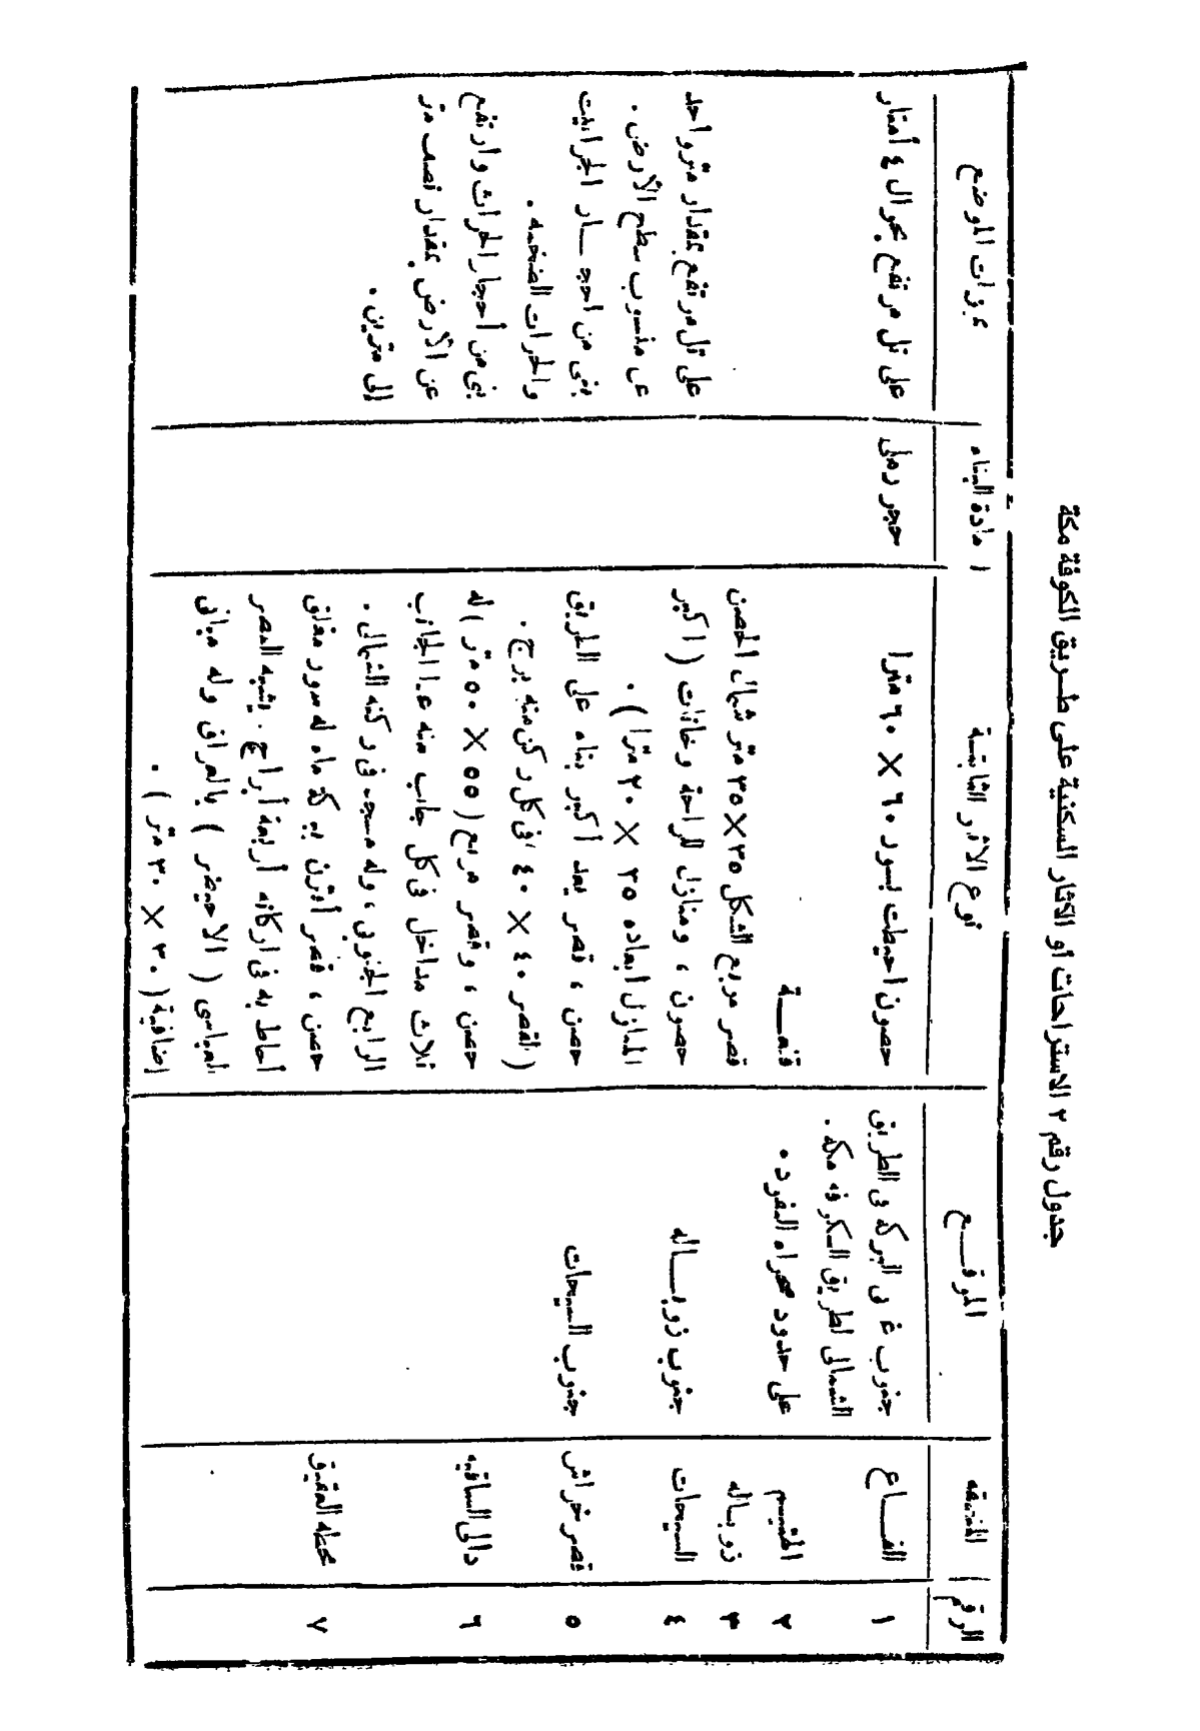 جدول رقم ٢ الاستراحات أو الآثار السكنية على طريق الكوفة مكة
الرقم
المنطقه
الموقـــع
نوع الاثر الثابتـة
مادة البناء
مميزات الموضع
١
الفـــاع
جنوب غربى البركة فى الطريق
الشمالى لطريق الكوفه مكه .
حصون احيطت بسور ٦٠ × ٦٠ مترا
حجر رملى
على تل مرتفع بحوالى ٤ أمتار
٢
الهيثم
على حدود صحراء النفود .
قلعـــة
٣
زوباله
قصر مربع الشكل ٣٥ × ٣٥ متر شمال الحصن
٤
السيحات
جنوب زوبـــاله
حصون ، ومنازل للراحة وخانات ( اكبر
المنازل ابعاده ٢٥ × ٢٠ مترا ) .
على تل مرتفع بمقدار متر واحد
عن منسوب سطح الأرض .
٥
قصر خراش
جنوب السيحات
حصن ، قصر يعد أكبر بناء على الطريق
( القصر ٤٠ × ٤٠ ) فى كل ركن منه برج .
بنى من احجـــار الجرانيت
والحرات الضخمه .
٦
دالى الساقيه
حصن ، وقصر مربع ( ٥٥ × ٥٠ متر ) له
ثلاث مداخل فى كل جانب منه عدا الجانب
الرابع الجنوبى ، وله مسجد فى ركنه الشمالى .
بنى من أحجار الحراث وارتفع
عن الأرض بمقدار نصف متر
إلى مترين .
٧
محطه العقيق
حصن ، قصر أقرن به بركة ماء له سور مغلق
أحاط به فى اركانه أربعة أبراج . يشبه القصر
العباسى ( الاخيضر ) بالعراق وله مبانى
إضافية ( ٣٠ × ٣٠ متر ) .